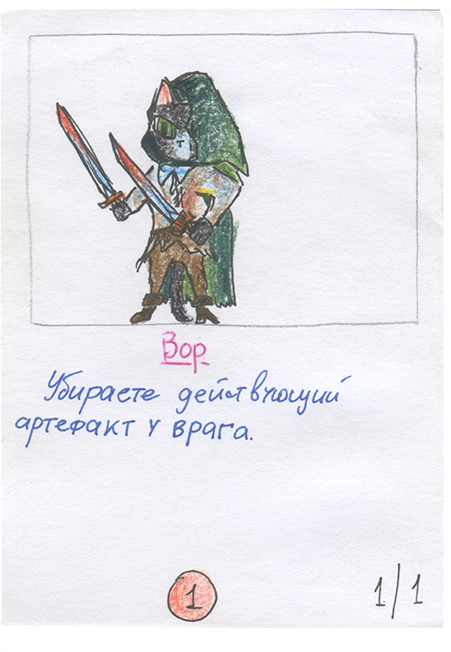 Вор.
Убираете действующий
артефакт у врага.
1
1/1